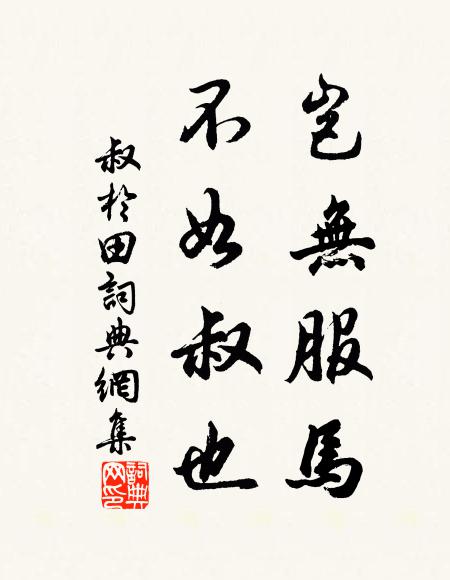 豈無服馬
不如叔也
叔於田詞典網集
詞典
网印